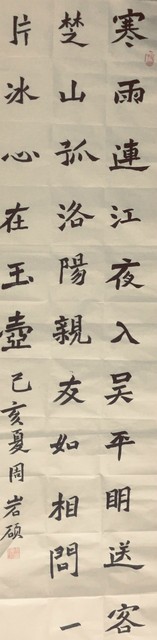 寒雨連江夜入吴平明送客
楚山孤洛陽親友如相問一
片冰心在玉壺己亥夏周岩碩